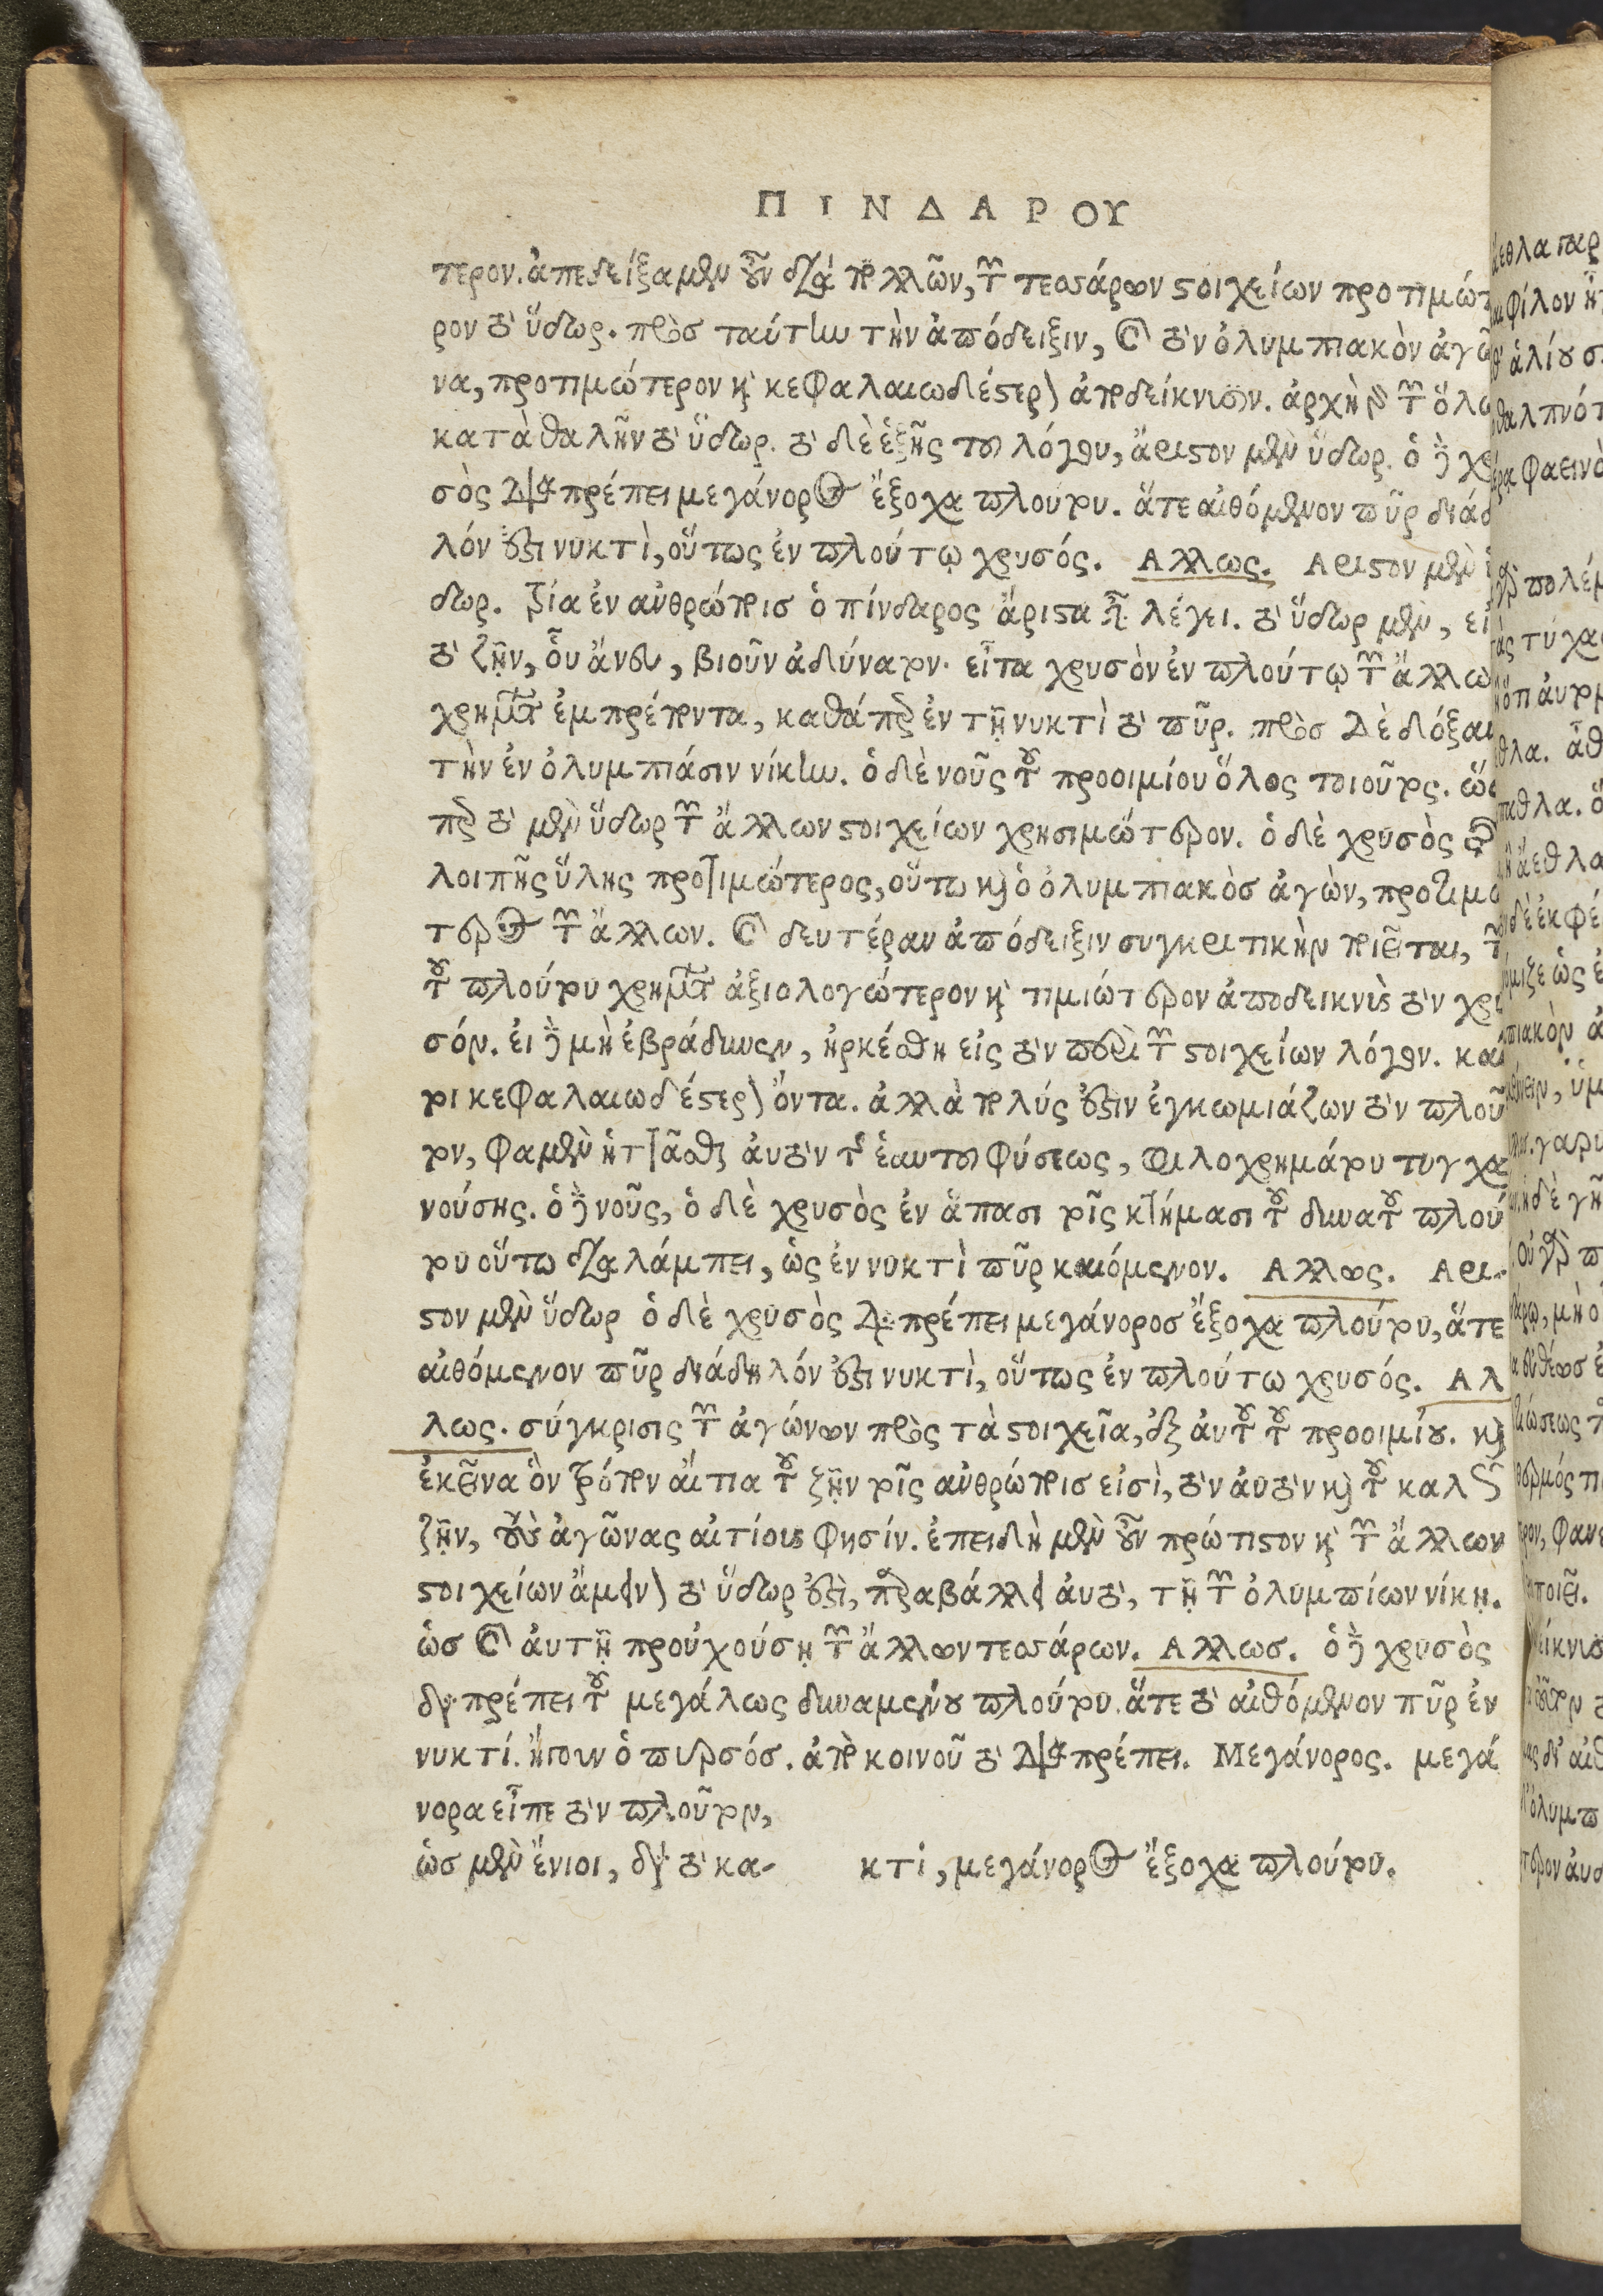 ΠΙΝΔΑΡΟΥ
τερον. ἀπεδείξαμεν οὖν διὰ πολλῶν, τῶν τεσσάρων στοιχείων προτιμώ
ρον τὸ ὕδωρ. πρὸς ταύτην τὴν ἀπόδειξιν, καὶ τὸν ὀλυμπιακὸν ἀγῶ
να, προτιμώτερον καὶ κεφαλαιωδέστερον ἀποδείκνυσιν. ἀρχὴ γὰρ τῶν ὅλω
κατὰ θαλῆν τὸ ὕδωρ. τὸ δὲ ἑξῆς τοῦ λόγου, ἄριστον μὲν ὕδωρ. ὁ δὲ χρ
σὸς διαπρέπει μεγάνορος ἔξοχα πλούτου. ἅτε αἰθόμενον πῦρ διάδ
λόν ἐστι νυκτὶ, οὕτως ἐν πλούτῳ χρυσός. Αλλως. Αριστον μὲν
δωρ. τρία ἐν ἀνθρώποισ ὁ πίνδαρος ἄριστα εἶναι λέγει. τὸ ὕδωρ μὲν, εἰ
τὸ ζῆν, οὗ ἄνευ, βιοῦν ἀδύνατον. εἶτα χρυσὸν ἐν πλούτῳ τῶν ἄλλω
χρημάτων ἐμπρέποντα, καθάπερ ἐν τῇ νυκτὶ τὸ πῦρ. πρὸσ δὲ δόξαν
τὴν ἐν ὀλυμπιάσιν νίκην. ὁ δὲ νοῦς τοῦ προοιμίου ὅλος τοιοῦτος. ὥσ
περ τὸ μὲν ὕδωρ τῶν ἄλλων στοιχείων χρησιμώτερον. ὁ δὲ χρυσὸς τῆς
λοιπῆς ὕλης προτιμώτερος, οὕτω καὶ ὁ ὀλυμπιακὸσ ἀγὼν, προτιμώ
τερος τῶν ἄλλων. καὶ δευτέραν ἀπόδειξιν συγκριτικὴν ποιεῖται,
τοῦ πλούτου χρημάτων ἀξιολογώτερον καὶ τιμιώτερον ἀποδεικνὺς τὸν χρυ
σόν. εἰ δὲ μὴ ἐβράδυνεν, ἠρκέσθη εἰς τὸν περὶ τῶν στοιχείων λόγον. καί
τοι κεφαλαιωδέστερον ὄντα. ἀλλὰ πολύς ἐστιν ἐγκωμιάζων τὸν πλοῦ
τον, φαμὲν ἡττᾶσθαι ἀυτὸν τῆς ἑαυτοῦ φύσεως, φιλοχρημάτου τυγχα
νούσης. ὁ δὲ νοῦς, ὁ δὲ χρυσὸς ἐν ἅπασι τοῖς κτήμασι τοῦ δυνατοῦ πλού
του οὕτω διαλάμπει, ὡς ἐν νυκτὶ πῦρ καιόμενον. Αλλως. Αρι-
στον μὲν ὕδωρ ὁ δὲ χρυσὸς διαπρέπει μεγάνοροσ ἔξοχα πλούτου, ἅτε
αἰθόμενον πῦρ διάδηλόν ἐστι νυκτὶ, οὕτως ἐν πλούτω χρυσός. Αλ
λως. σύγκρισις τῶν ἀγώνων πρὸς τὰ στοιχεῖα, διὰ ἀυτοῦ τοῦ προοιμίου. καὶ
ἐκεῖνα ὃν τρόπον αἴτια τοῦ ζῆν τοῖς ἀνθρώποισ εἰσὶ, τὸν ἀυτὸν καὶ τοῦ καλῶς
ζῆν, τοὺς ἀγῶνας αἰτίους φησίν. ἐπειδὴ μὲν οὖν πρώτιστον καὶ τῶν ἄλλων
στοιχείων ἄμεινον τὸ ὕδωρ ἐστὶ, παραβάλλει ἀυτὸ, τῇ τῶν ὀλυμπίων νίκῃ.
ὡσ καὶ ἀυτῇ προὐχούσῃ τῶν ἄλλων τεσσάρων. Αλλωσ. ὁ δὲ χρυσὸς
διαπρέπει τοῦ μεγάλως δυναμένου πλούτου. ἅτε τὸ αἰθόμενον πῦρ ἐν
νυκτί. ἤγουν ὁ πυρσόσ. ἀπὸ κοινοῦ τὸ διαπρέπει. Μεγάνορος. μεγά
νορα εἶπε τὸν πλοῦτον,
ὡσ μὲν ἔνιοι, διὰ τὸ κα- κτὶ, μεγάνορος ἔξοχα πλούτου.